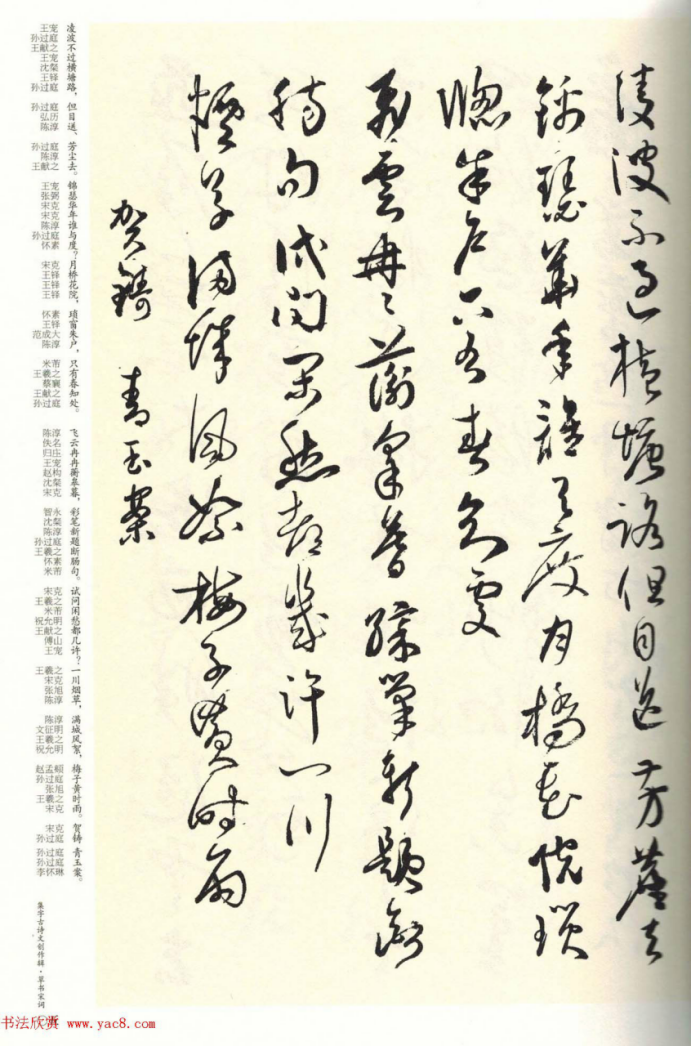 凌波不過橫塘路但目送芳塵去
錦瑟華年誰與度月橋花院瑣
窗朱戶只有春知處
飛雲冉冉蘅皋暮綵筆新題斷
腸句試問閒愁都幾許一川
煙草滿城風絮梅子黃時雨
賀鑄 青玉案
凌波不过横塘路，但目送、芳尘去。锦瑟华年谁与度？月桥花院，琐窗朱户，只有春知处。飞云冉冉蘅皋暮，彩笔新题断肠句。试问闲愁都几许？一川烟草，满城风絮，梅子黄时雨。贺铸 青玉案。
王宠 孙过庭 王献之 王宠 沈粲 王铎 孙过庭 孙过庭 弘历 陈淳 孙过庭 陈淳 王献之 王宠 张弼 宋克 宋克 陈淳 孙过庭 怀素 宋克 王铎 王铎 王铎 怀素 王铎 范成大 陈淳 米芾 王羲之 蔡襄 王献之 孙过庭 陈淳 佚名 归庄 王宠 赵构 沈粲 宋克 智永 沈粲 陈淳 孙过庭 王羲之 怀素 米芾 宋克 王羲之 米芾 祝允明 王献之 傅山 王宠 王羲之 宋克 张旭 陈淳 陈淳 文征明 王羲之 祝允明 赵孟頫 孙过庭 张旭 王羲之 宋克 宋克 孙过庭 孙过庭 孙过庭 李怀琳
集字古诗文创作辑·草书宋词
书法欣赏 www.yac8.com